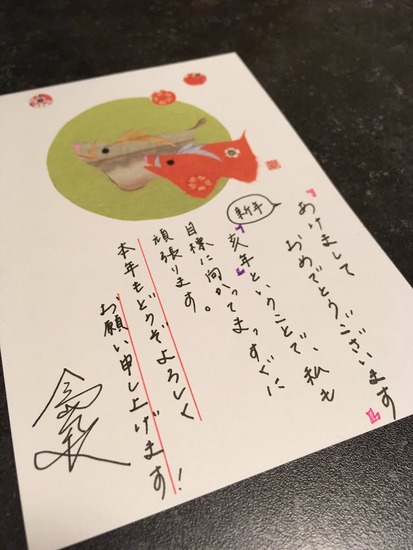 あけまして
おめでとうございます
新年
亥年ということで、私も
まっすぐに
目標に向かって
頑張ります。
本年もどうぞよろしく
お願い申し上げます!